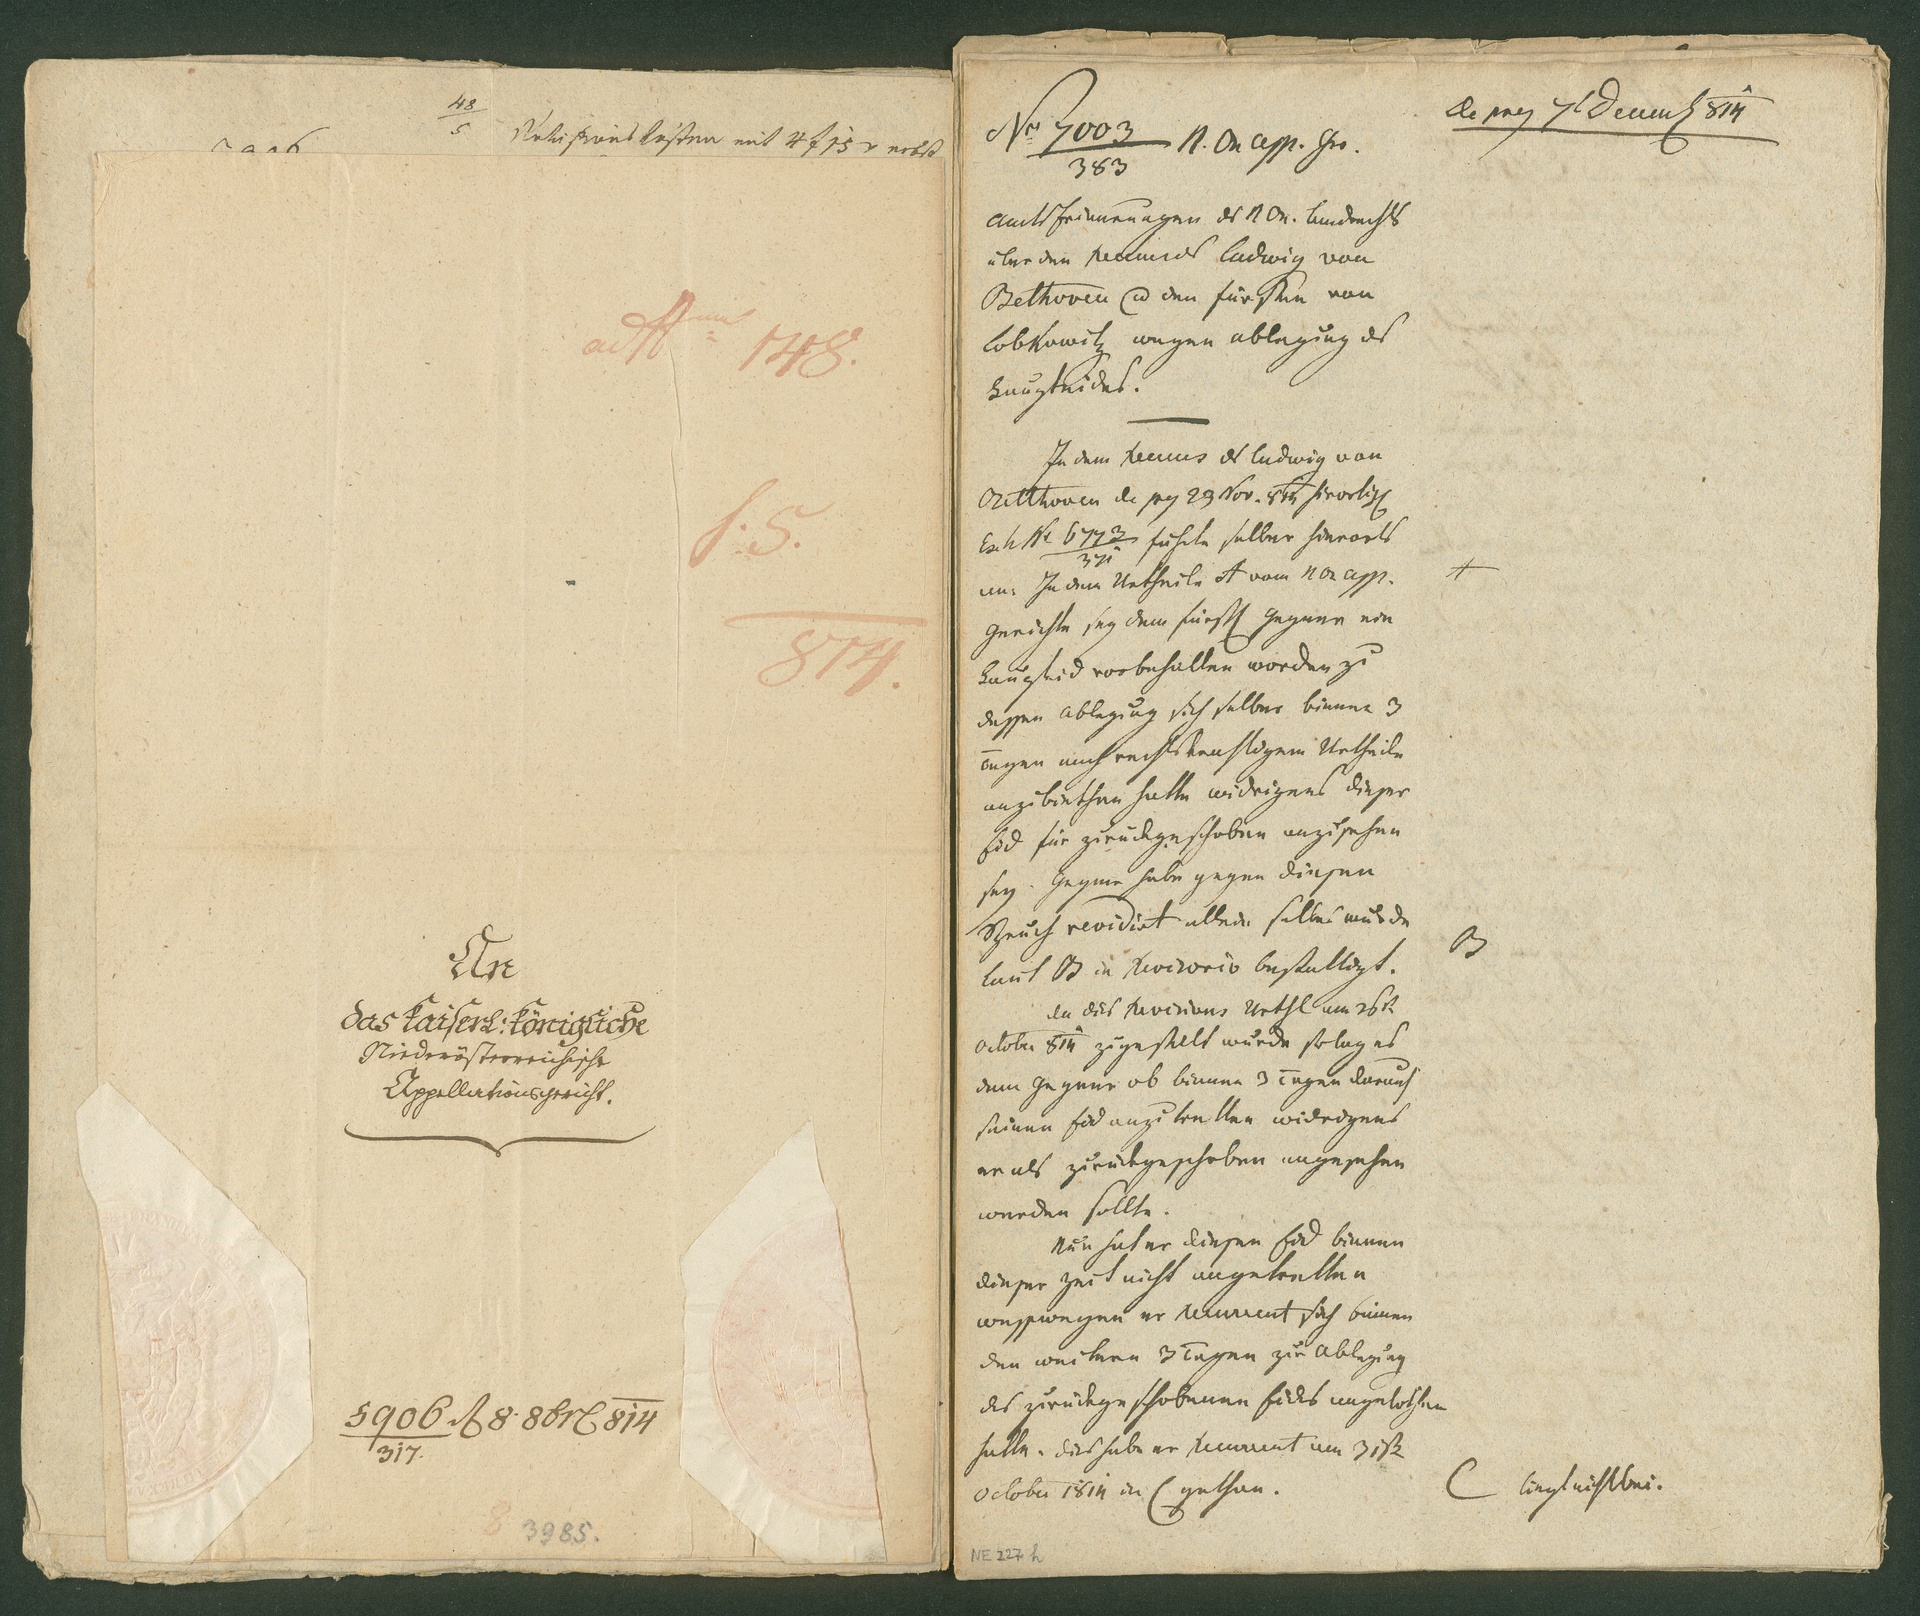 48
5
Revisionskosten mit 4 f 15 x nebst
ad Num 148.
f: 5.
814.
An
das kaiserl: königliche
Niederösterreichische
Appellationsgericht.
5906 8 8brl 814
317.
8 3985.
Nro 7003
383
N. Oe app. Ger.
de prs 7t Decemb 814
Amtserinnerungen des N Oe. Landrechts
über den Recurs des Ludwig von
Bethoven den Fürsten von
Lobkowitz wegen Ablegung des
Haupteides.
In dem Recurs des Ludwig von
Bethoven de prs 29 Nov. 814
Exh Nr 6773
371
führte selber hierorts
an: In dem Urtheile A vom N Oe app.
Gerichte sey dem fürstl Gegner ein
Haupteid vorbehalten worden zu
dessen Ablegung sich selber binnen 3
Tagen nach rechtskräftigem Urtheile
anzubiethen hatte widrigens dieser
Eid für zurückgeschoben anzusehen
sey. Gegner habe gegen diesen
Spruch revidirt allein selber wurde
laut B in Revisorio bestättigt.
Da dies Revisions Urthl am 26t
October 814 zugestellt wurde so lag es
dem Gegner ob binnen 3 Tagen darauf
seinen Eid anzutretten widrigens
er als zurückgeschoben angesehen
werden sollte.
Nun hat er diesen Eid binnen
dieser Zeit nicht angetretten
wesswegen er Recurrent sich binnen
den weitern 3 Tagen zur Ablegung
des zurückgeschobenen Eides angebothen
hatte. Dies habe er Recurrent am 31t
October 1814 in C gethan.
A
B
C liegt nicht bei.
NE 227 h